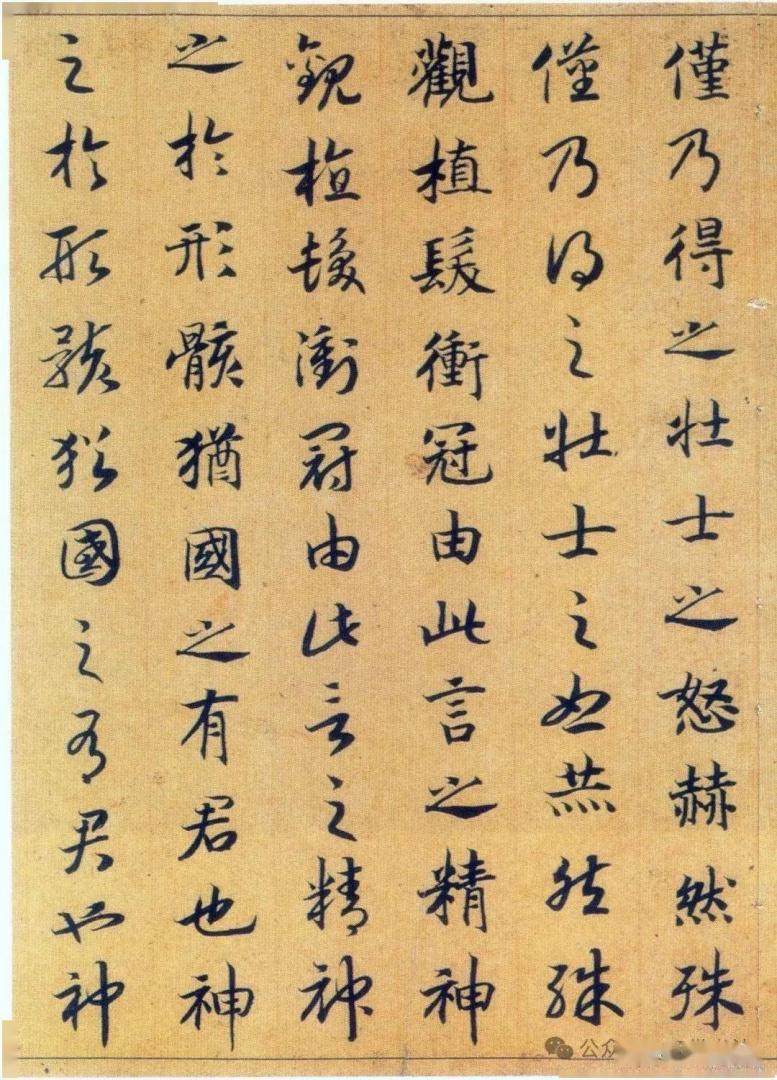 僅乃得之壮士之怒赫然殊
僅乃得之壮士之怒赫然殊
觀植髮衝冠由此言之精神
觀植髮衝冠由此言之精神
之於形骸猶國之有君也神
之於形骸猶國之有君也神
公众